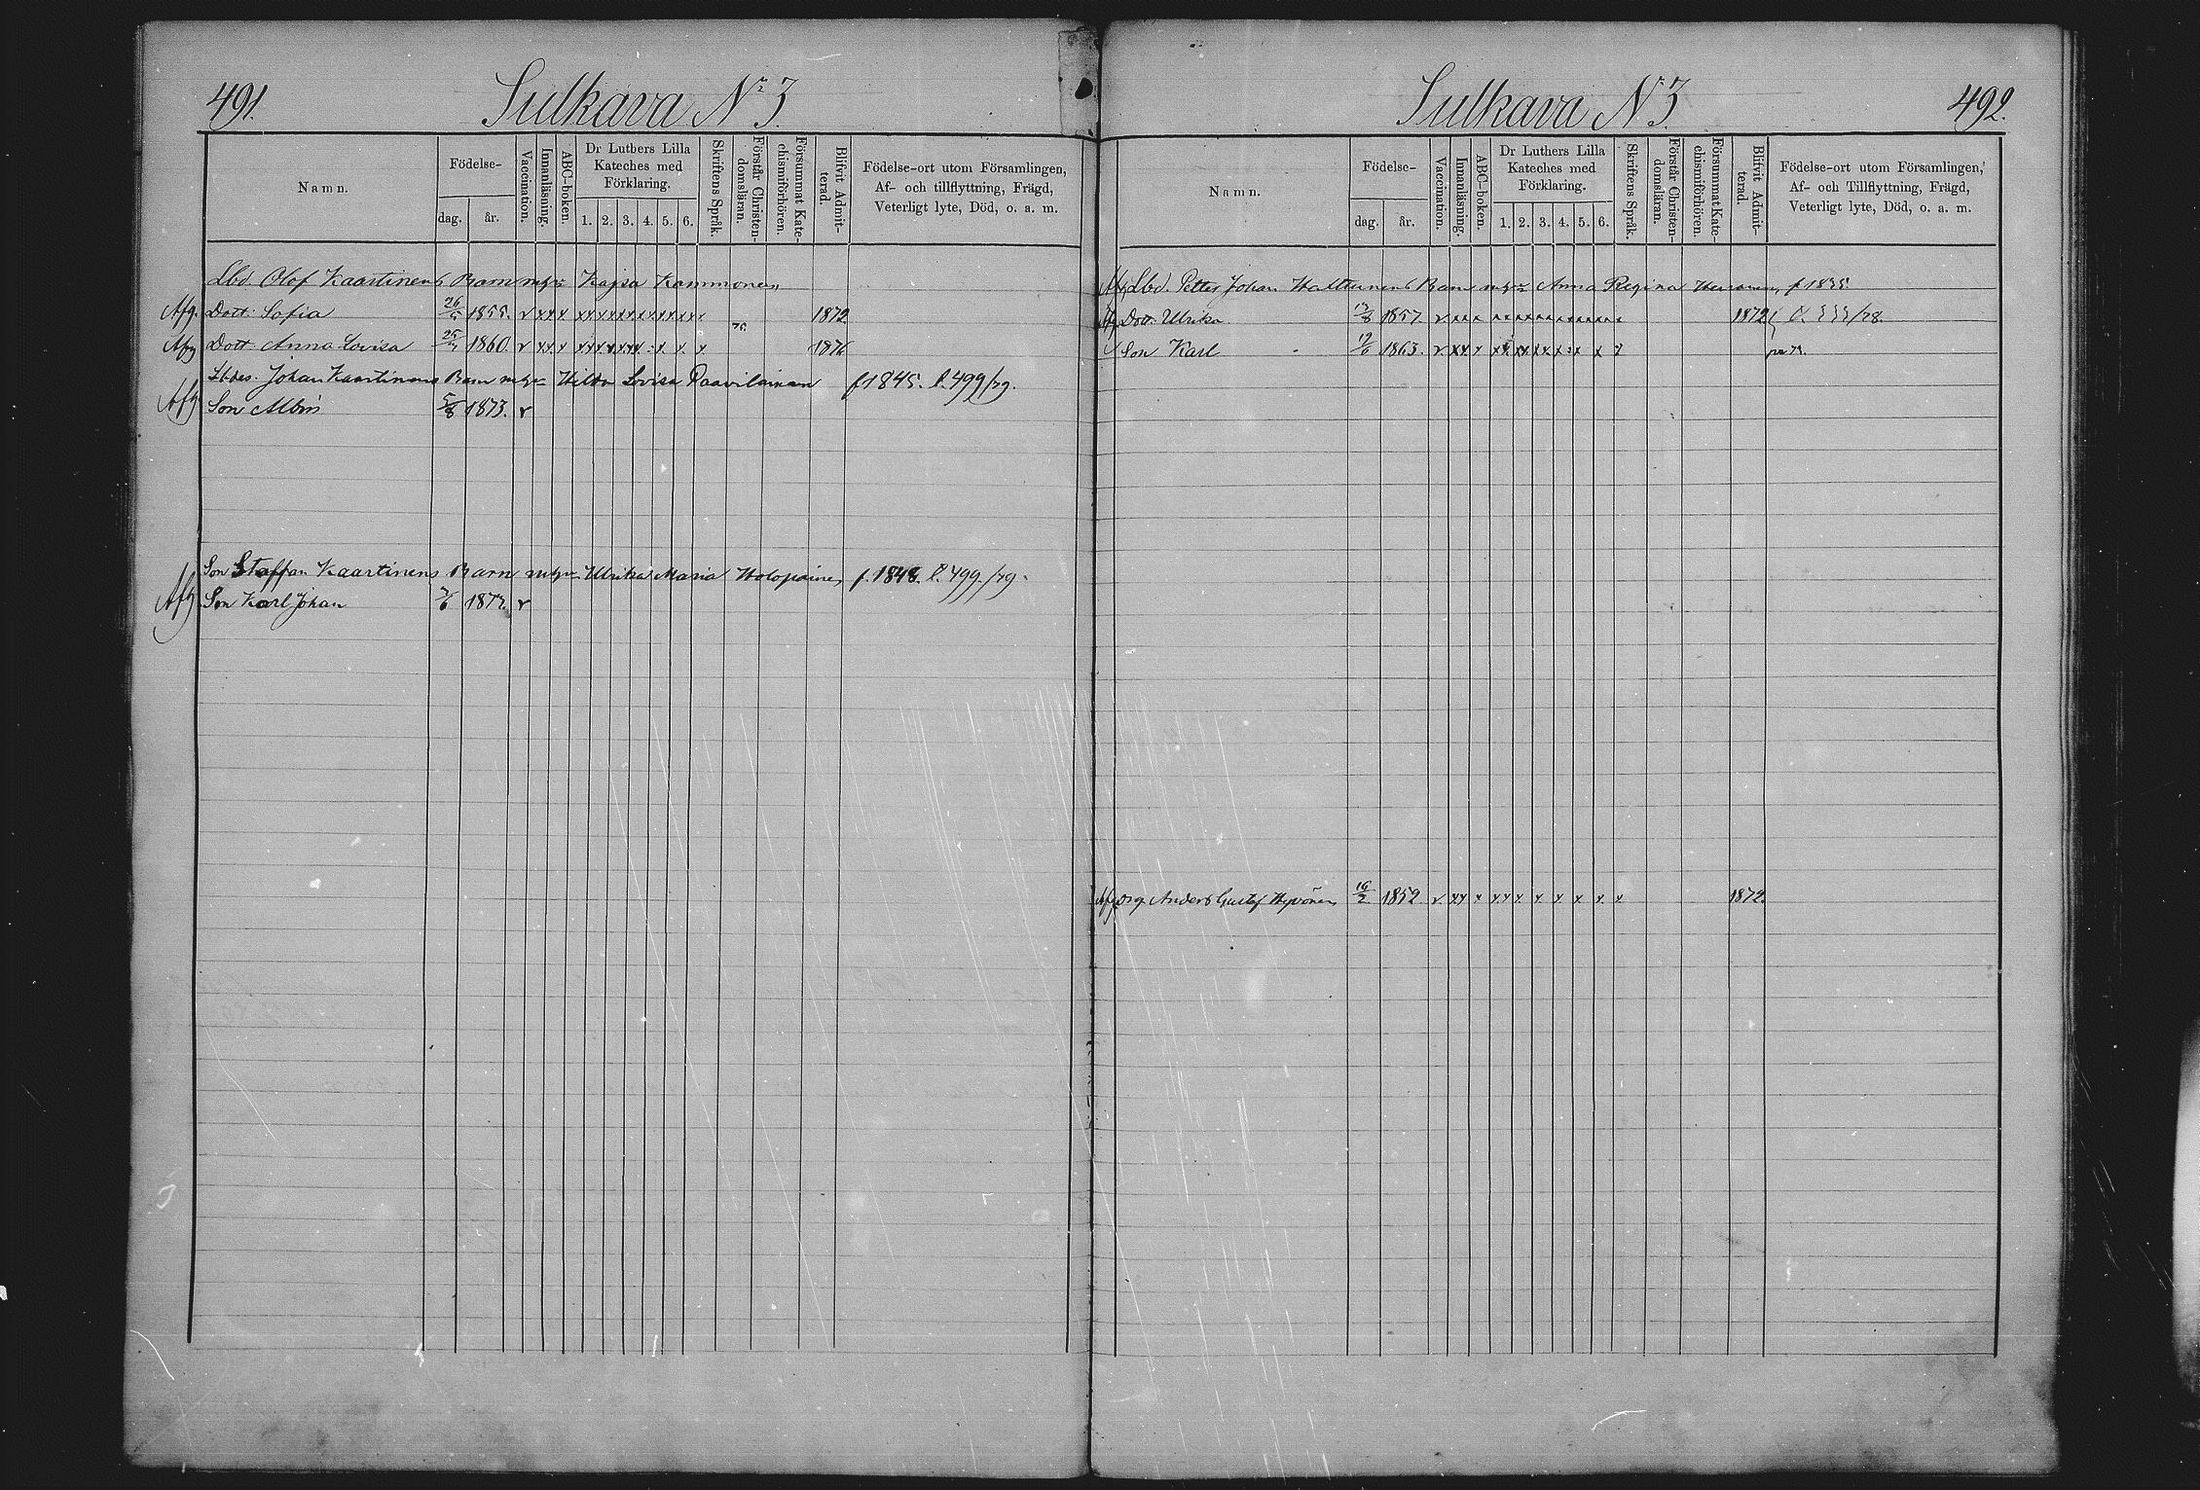 491.
Sulkava Nr 3.
Namn.
Födelse-
dag.
år.
Vaccination.
Innanläsning.
ABC-boken.
Dr Luthers Lilla
Kateches med
Förklaring.
1. 2. 3. 4. 5. 6.
Skriftens Språk.
Förstår Christen-
domsläran.
Försummat Kate-
chismiförhören.
Blifvit Admit-
terad.
Födelse-ort utom Församlingen,
Af- och tillflyttning, Frägd,
Veterligt lyte, Död, o. a. m.
Lbd. Olof Kaartinens Barn Kajsa Kammonen
Afg. Dott. Sofia 1855. v xx x xx xx xx xx xx xx x 1872
Afg Dott Anna Lovisa 1860. v xx x 75. 1876
Johan Kaartinens Barn Hilda Lovisa Paavilainen f. 1845. l. 499/79.
Afg Son Albin 5/8 1873. v
Son Staffan Kaartinens Barn Ulrika Maria Holopainen f. 1848. l. 499./79.
Afg Son Karl Johan 1872 v
Sulkava N 3.
492.
Namn.
Födelse-
dag.
år.
Vaccination.
Innanläsning.
ABC-boken.
Dr Luthers Lilla
Kateches med
Förklaring.
1. 2. 3. 4. 5. 6.
Skriftens Språk.
Förstår Christen-
domsläran.
Försummat Kate-
chismiförhören.
Blifvit Admit-
terad.
Födelse-ort utom Församlingen,
Af- och Tillflyttning, Frägd,
Veterligt lyte, Död, o. a. m.
Lbd. Petter Johan Halttunens Barn Anna Regina f 1835
Afg Dott. Ulrika 1857. v 1872 /78.
Son Karl 1863. v xx x
Afg Anders Gustaf Hyvönen 19/2 1852 v xx x xx x x x x x x 1872.